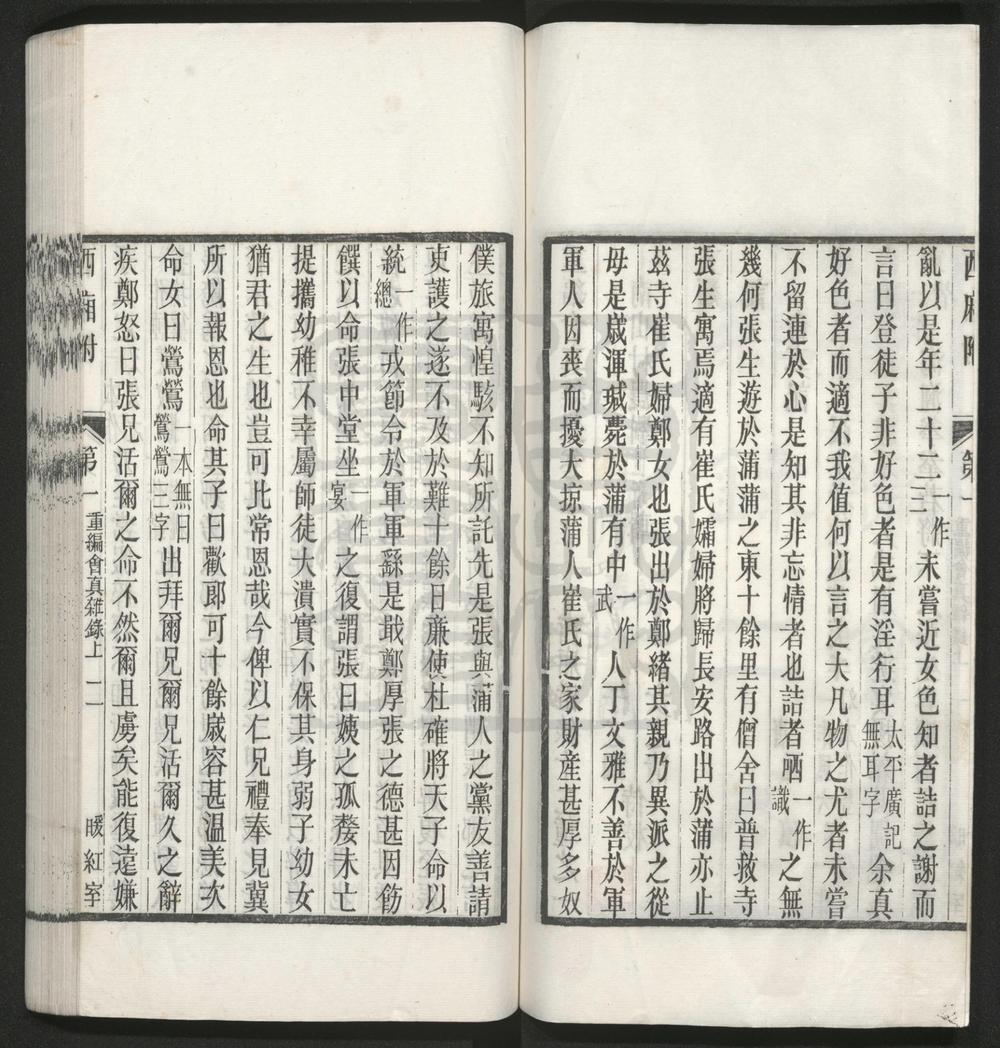 西廂附 第一
亂以是年二十二一作三未嘗近女色知者詰之謝而
言曰登徒子非好色者是有淫行耳太平廣記無耳字余真
好色者而適不我值何以言之大凡物之尤者未嘗
不留連於心是知其非忘情者也詰者哂一作識之無
幾何張生遊於蒲蒲之東十餘里有僧舍曰普救寺
張生寓焉適有崔氏孀婦將歸長安路出於蒲亦止
茲寺崔氏婦鄭女也張出於鄭緒其親乃異派之從
母是歲渾瑊薨於蒲有中一作武人丁文雅不善於軍
軍人因喪而擾大掠蒲人崔氏之家財產甚厚多奴
僕旅寓惶駭不知所託先是張與蒲人之黨友善請
吏護之遂不及於難十餘日廉使杜確將天子命以
統一作總戎節令於軍軍繇是戢鄭厚張之德甚因飭
饌以命張中堂坐一作宴之復謂張曰姨之孤嫠未亡
提攜幼稚不幸屬師徒大潰實不保其身弱子幼女
猶君之生也豈可比常恩哉今俾以仁兄禮奉見冀
所以報恩也命其子曰歡郎可十餘歲容甚溫美次
命女曰鶯鶯一本無曰鶯鶯三字出拜爾兄爾兄活爾久之辭
疾鄭怒曰張兄活爾之命不然爾且虜矣能復遠嫌
西廂附 第一 重編會真雜錄上 二 暖紅室